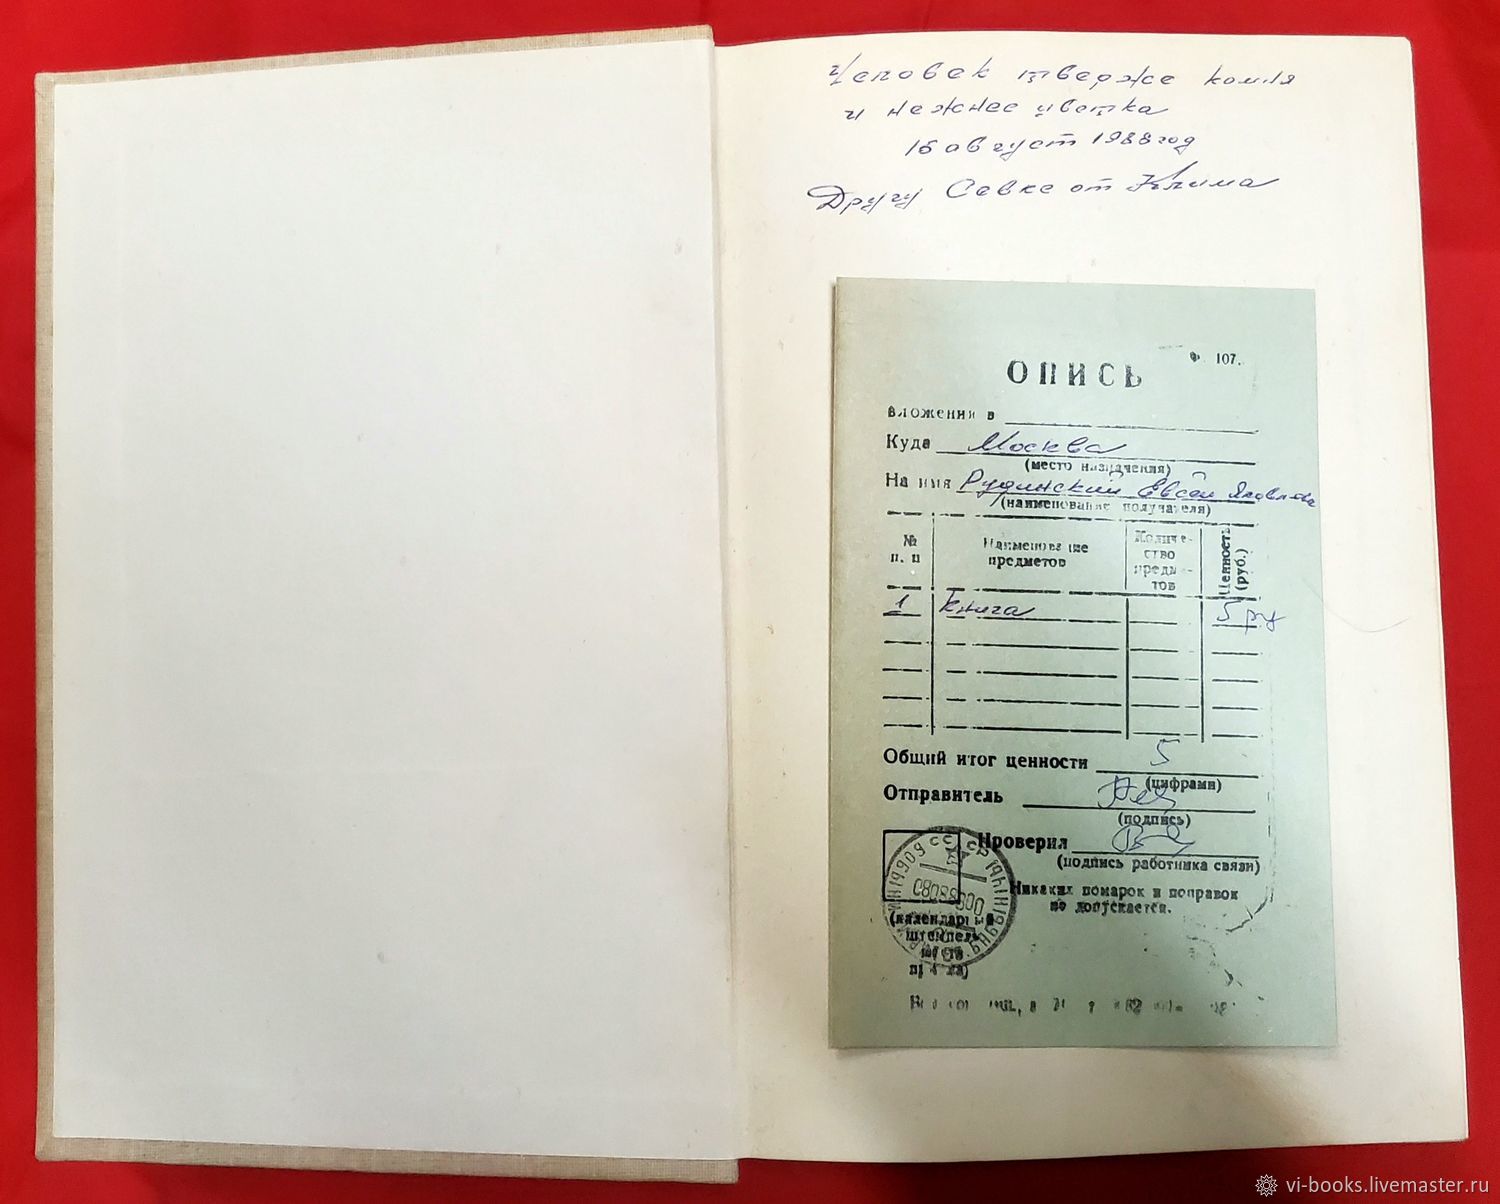 Человек тверже комля
и нежнее цветка
16 август 1988 год
Другу Севке от Клима
107.
ОПИСЬ
вложения в
Куда Москва
(место назначения)
На имя Рудинский Евсей Яковлев
(наименование получателя)
№ п. п
Наименование предметов
Количество предметов
Ценность (руб.)
1 Книга 5 ру
Общий итог ценности 5
(цифрами)
Отправитель
(подпись)
Проверил
(подпись работника связи)
СССР
Никаких помарок и поправок
не допускается.
(календарный
штемпель
места
приема)
vi-books.livemaster.ru